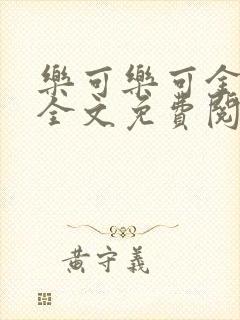 樂可樂可全
全文免費閱
黃守義